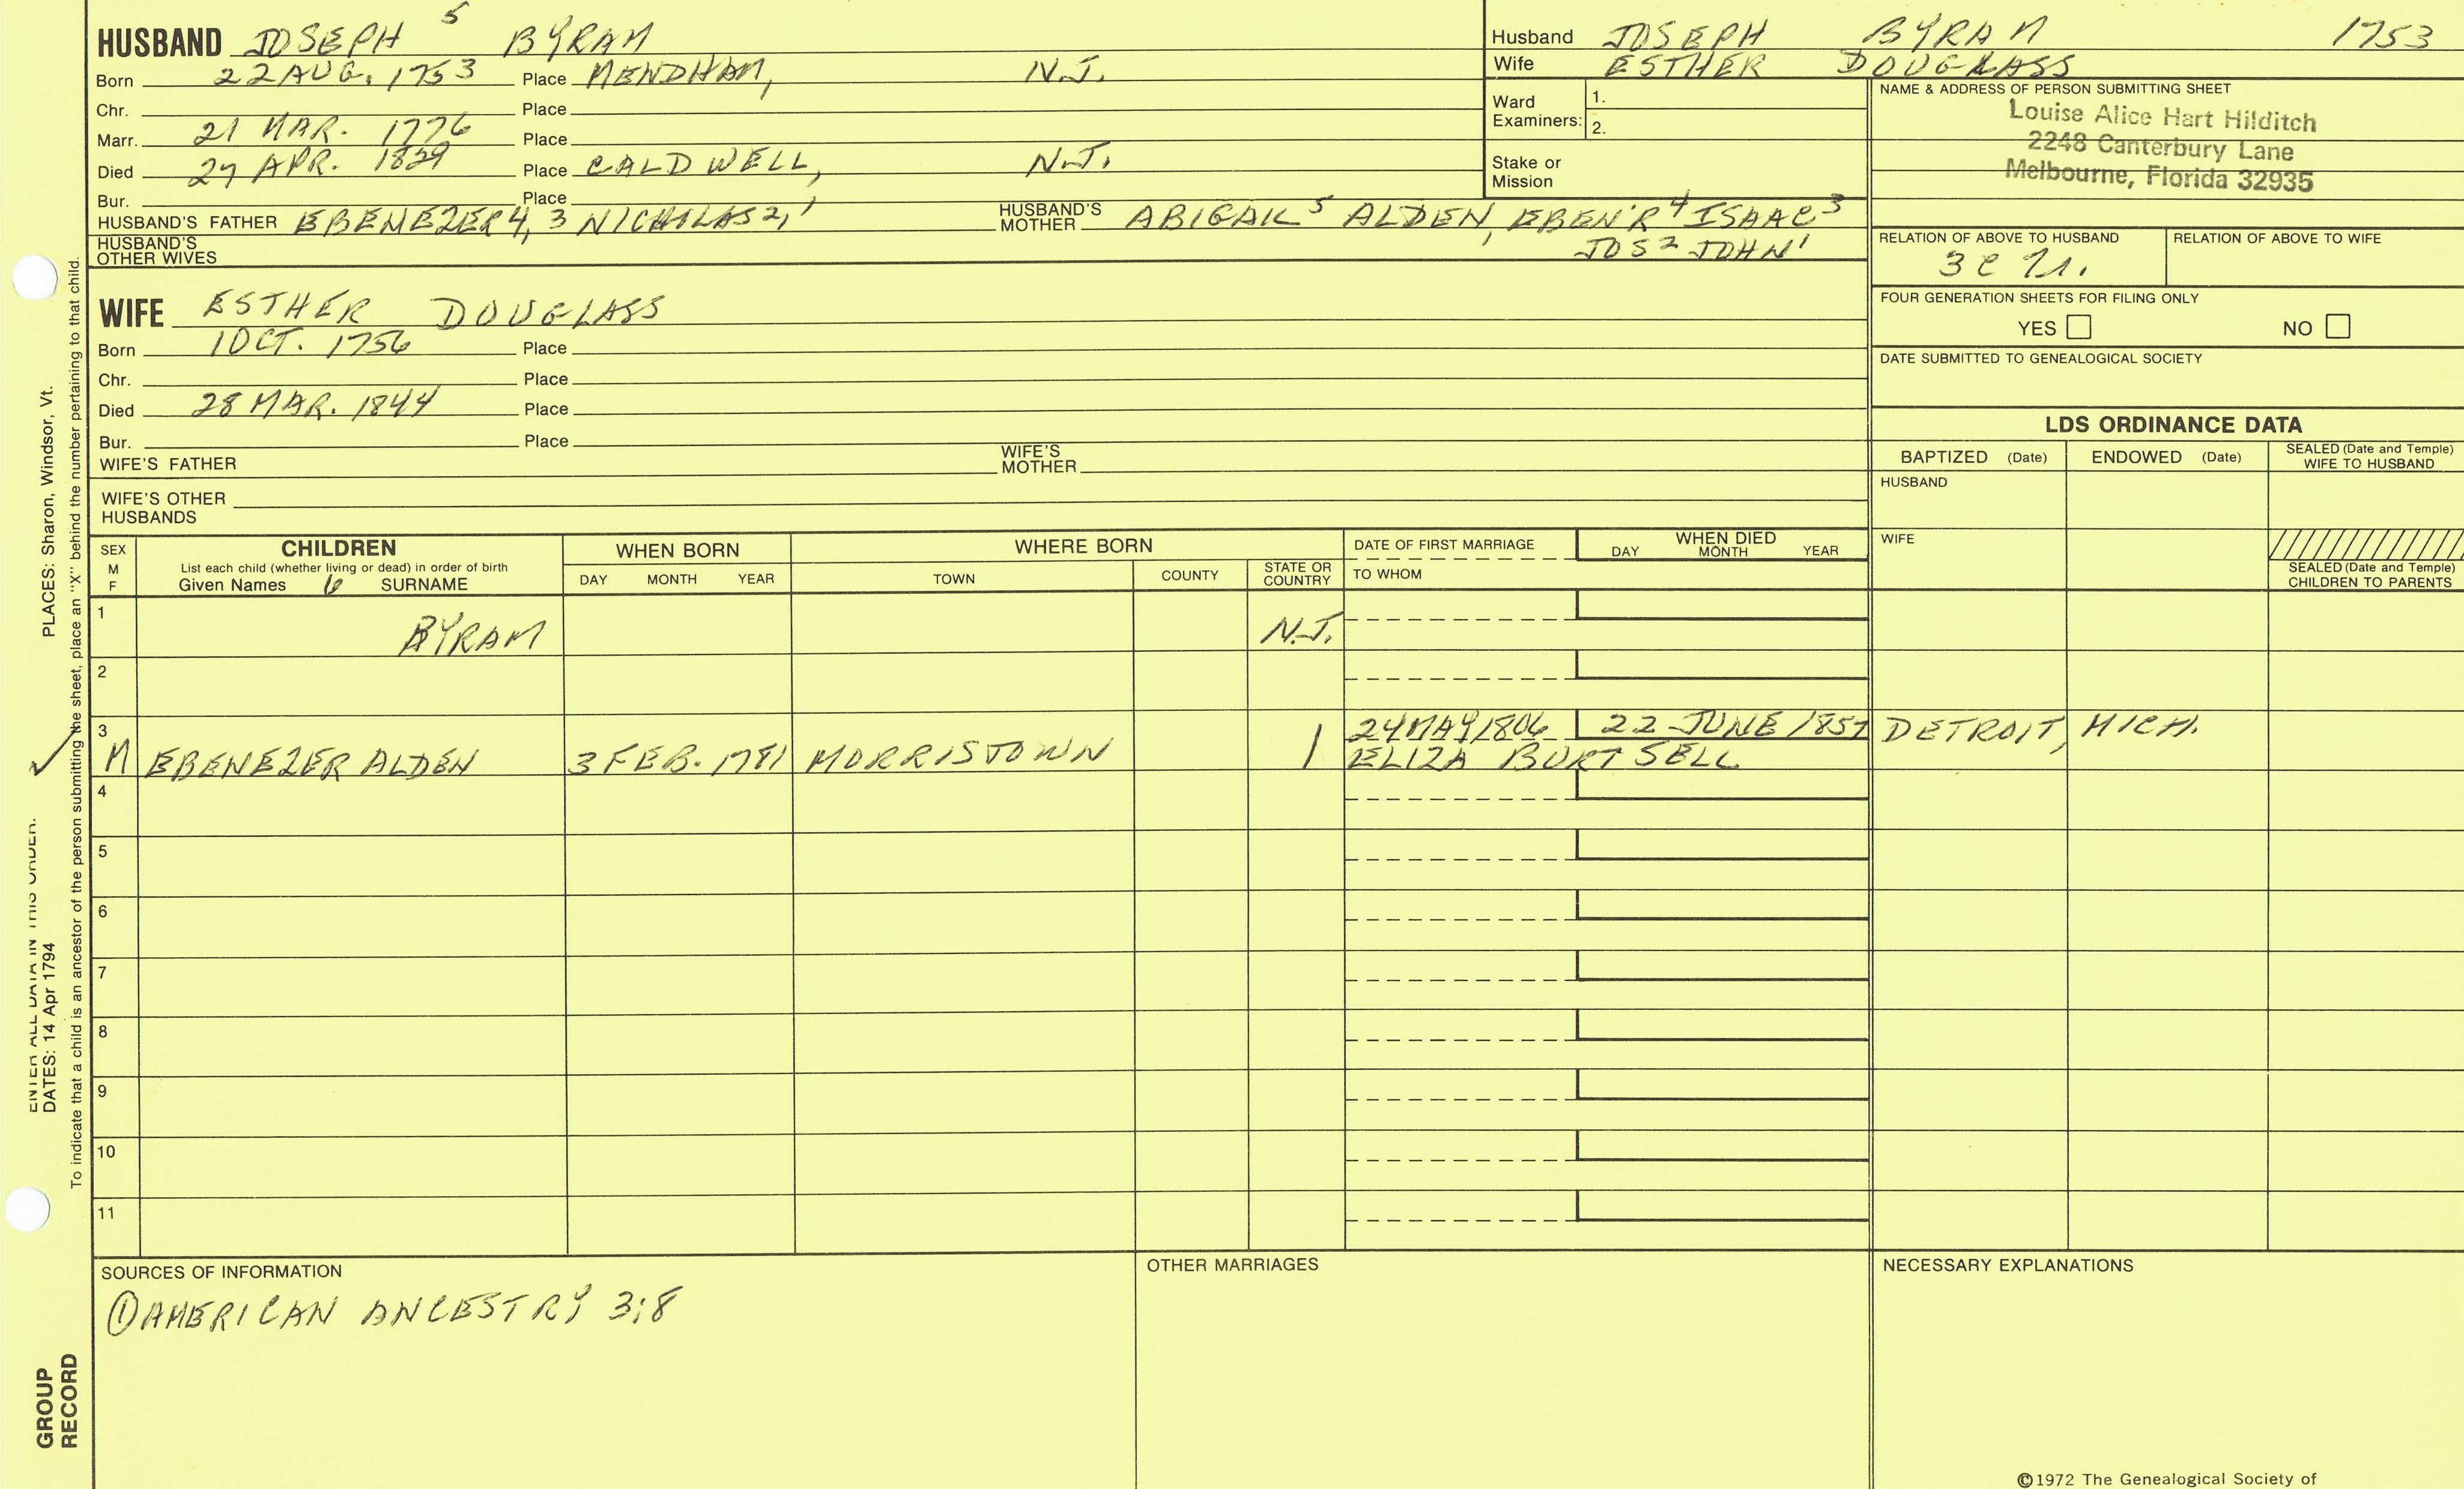 HUSBAND JOSEPH 5 BYRAM
Born 22 AUG. 1753 Place MENDHAM, N.J.
Chr. Place
Marr. 21 MAR. 1776 Place
Died 27 APR. 1829 Place CALDWELL, N.J.
Bur. Place
HUSBAND'S FATHER EBENEZER 4, 3 NICHOLAS 2, 1 HUSBAND'S MOTHER ABIGAIL 5 ALDEN, EBEN'R 4 ISAAC 3
HUSBAND'S OTHER WIVES JOS 2 JOHN 1
Husband JOSEPH BYRAM 1753
Wife ESTHER DOUGLASS
Ward Examiners: 1.
2.
Stake or Mission
NAME & ADDRESS OF PERSON SUBMITTING SHEET
Louise Alice Hart Hilditch
2248 Canterbury Lane
Melbourne, Florida 32935
RELATION OF ABOVE TO HUSBAND RELATION OF ABOVE TO WIFE
FOUR GENERATION SHEETS FOR FILING ONLY
YES NO
DATE SUBMITTED TO GENEALOGICAL SOCIETY
WIFE ESTHER DOUGLASS
Born 1 OCT. 1756 Place
Chr. Place
Died 28 MAR. 1844 Place
Bur. Place
WIFE'S FATHER WIFE'S MOTHER
WIFE'S OTHER HUSBANDS
LDS ORDINANCE DATA
BAPTIZED (Date) ENDOWED (Date) SEALED (Date and Temple) WIFE TO HUSBAND
HUSBAND
WIFE
SEALED (Date and Temple) CHILDREN TO PARENTS
SEX M F
CHILDREN
List each child (whether living or dead) in order of birth
Given Names 6 SURNAME
WHEN BORN
DAY MONTH YEAR
WHERE BORN
TOWN COUNTY STATE OR COUNTRY
DATE OF FIRST MARRIAGE
TO WHOM
WHEN DIED
DAY MONTH YEAR
1 BYRAM N.J.
2
3 24 MAY 1806 22 JUNE 1857 DETROIT, MICH.
M EBENEZER ALDEN 3 FEB. 1781 MORRISTOWN ELIZA BURTSELL
4
5
6
7
8
9
10
11
SOURCES OF INFORMATION
① AMERICAN ANCESTRY 3:8
OTHER MARRIAGES
NECESSARY EXPLANATIONS
©1972 The Genealogical Society of
ENTER ALL DATA IN THIS ORDER:
DATES: 14 Apr 1794 PLACES: Sharon, Windsor, Vt.
To indicate that a child is an ancestor of the person submitting the sheet, place an "X" behind the number pertaining to that child.
GROUP
RECORD